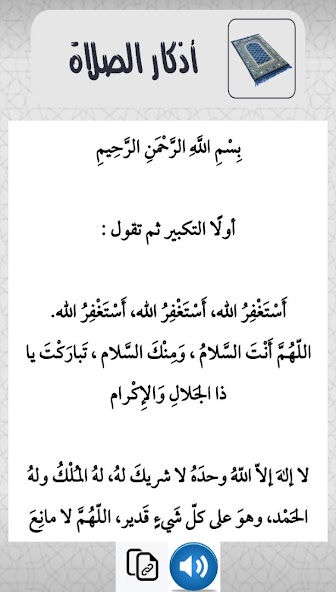 أذكار الصلاة
بِسْمِ اللَّهِ الرَّحْمَنِ الرَّحِيمِ
أولًا التكبير ثم تقول :
أَسْتَغْفِرُ الله، أَسْتَغْفِرُ الله، أَسْتَغْفِرُ الله.
اللّهُمَّ أَنْتَ السَّلامُ ، وَمِنْكَ السَّلام ، تَبارَكْتَ يا
ذا الجَلالِ وَالإِكْرام
لا إلهَ إلاّ اللّهُ وحدَهُ لا شريكَ لهُ، لهُ المُلْكُ ولهُ
الحَمْد، وهوَ على كلّ شَيءٍ قَدير، اللّهُمَّ لا مانِعَ